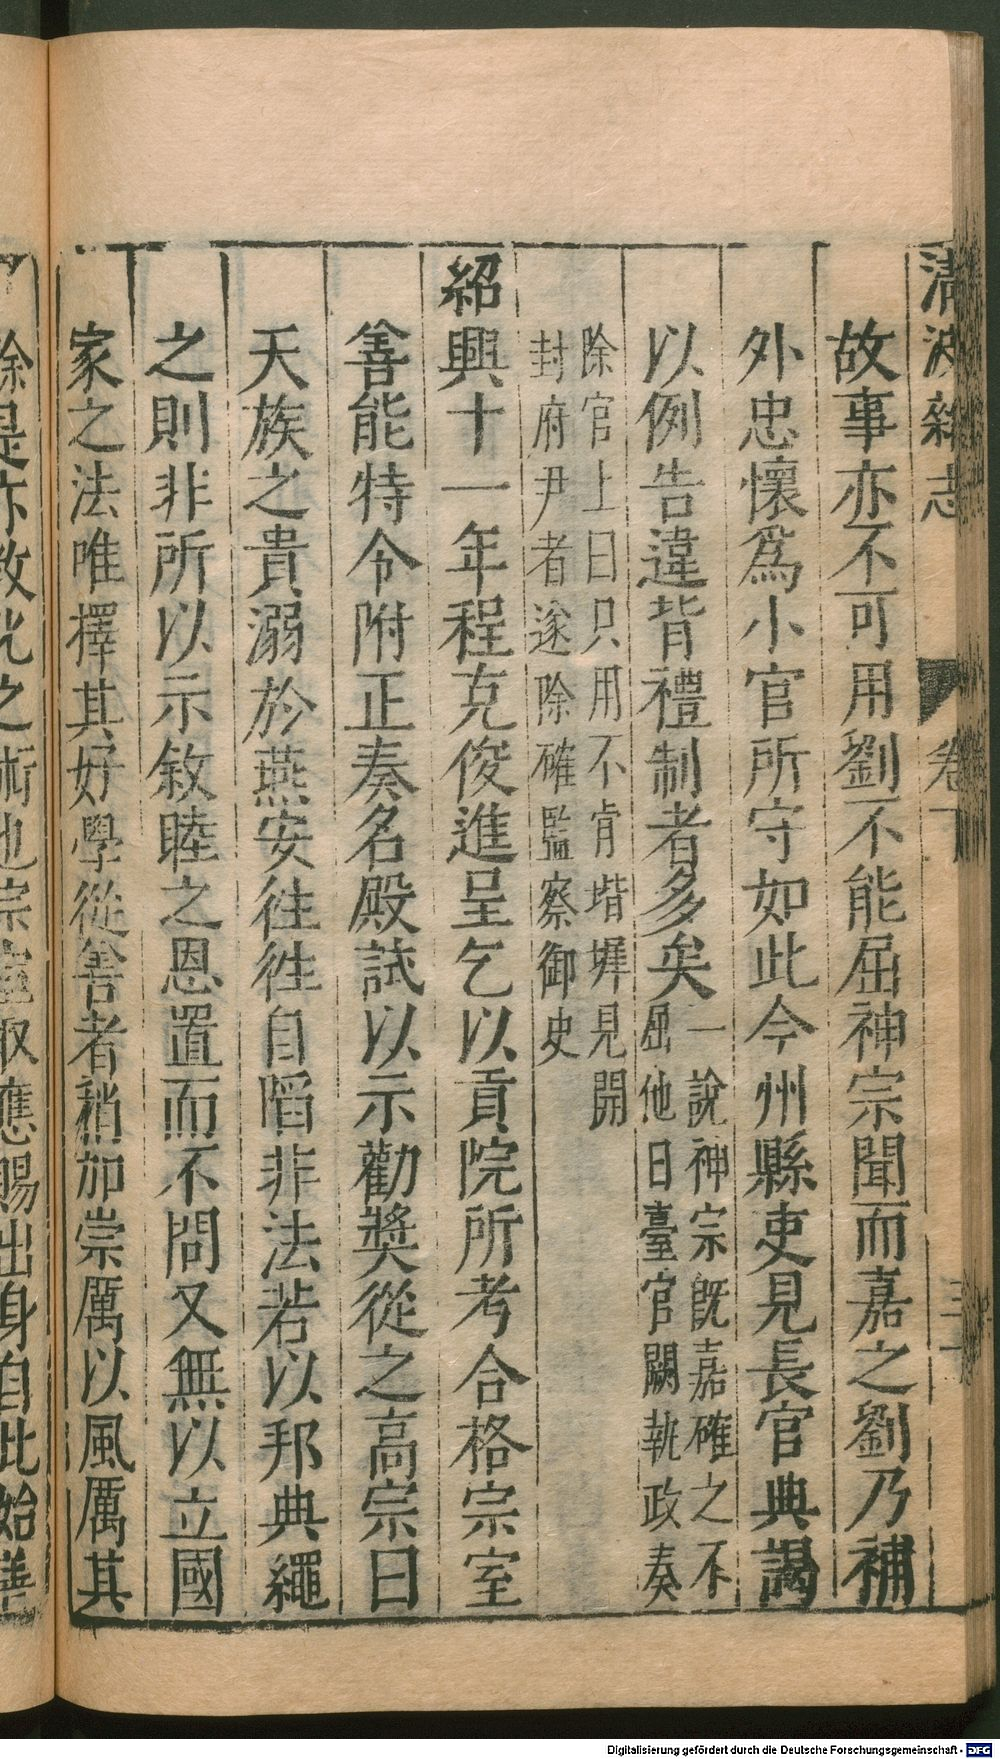 清波雜志 卷下
故事亦不可用劉不能屈神宗聞而嘉之劉乃補
外忠懷爲小官所守如此今州縣吏見長官典謁
以例告違背禮制者多矣
一說神宗旣嘉確之不
屈他日臺官闕執政奏
除官上曰只用不肯堦墀見開
封府尹者遂除確監察御史
紹興十一年程克俊進呈乞以貢院所考合格宗室
善能特令附正奏名殿試以示勸奬從之高宗曰
天族之貴溺於燕安往往自䧟非法若以邦典繩
之則非所以示敘睦之恩置而不問又無以立國
家之法唯擇其好學從善者稍加崇厲以風厲其
餘是亦敎化之術也宗室取應賜出身自此始善
Digitalisierung gefördert durch die Deutsche Forschungsgemeinschaft - DFG